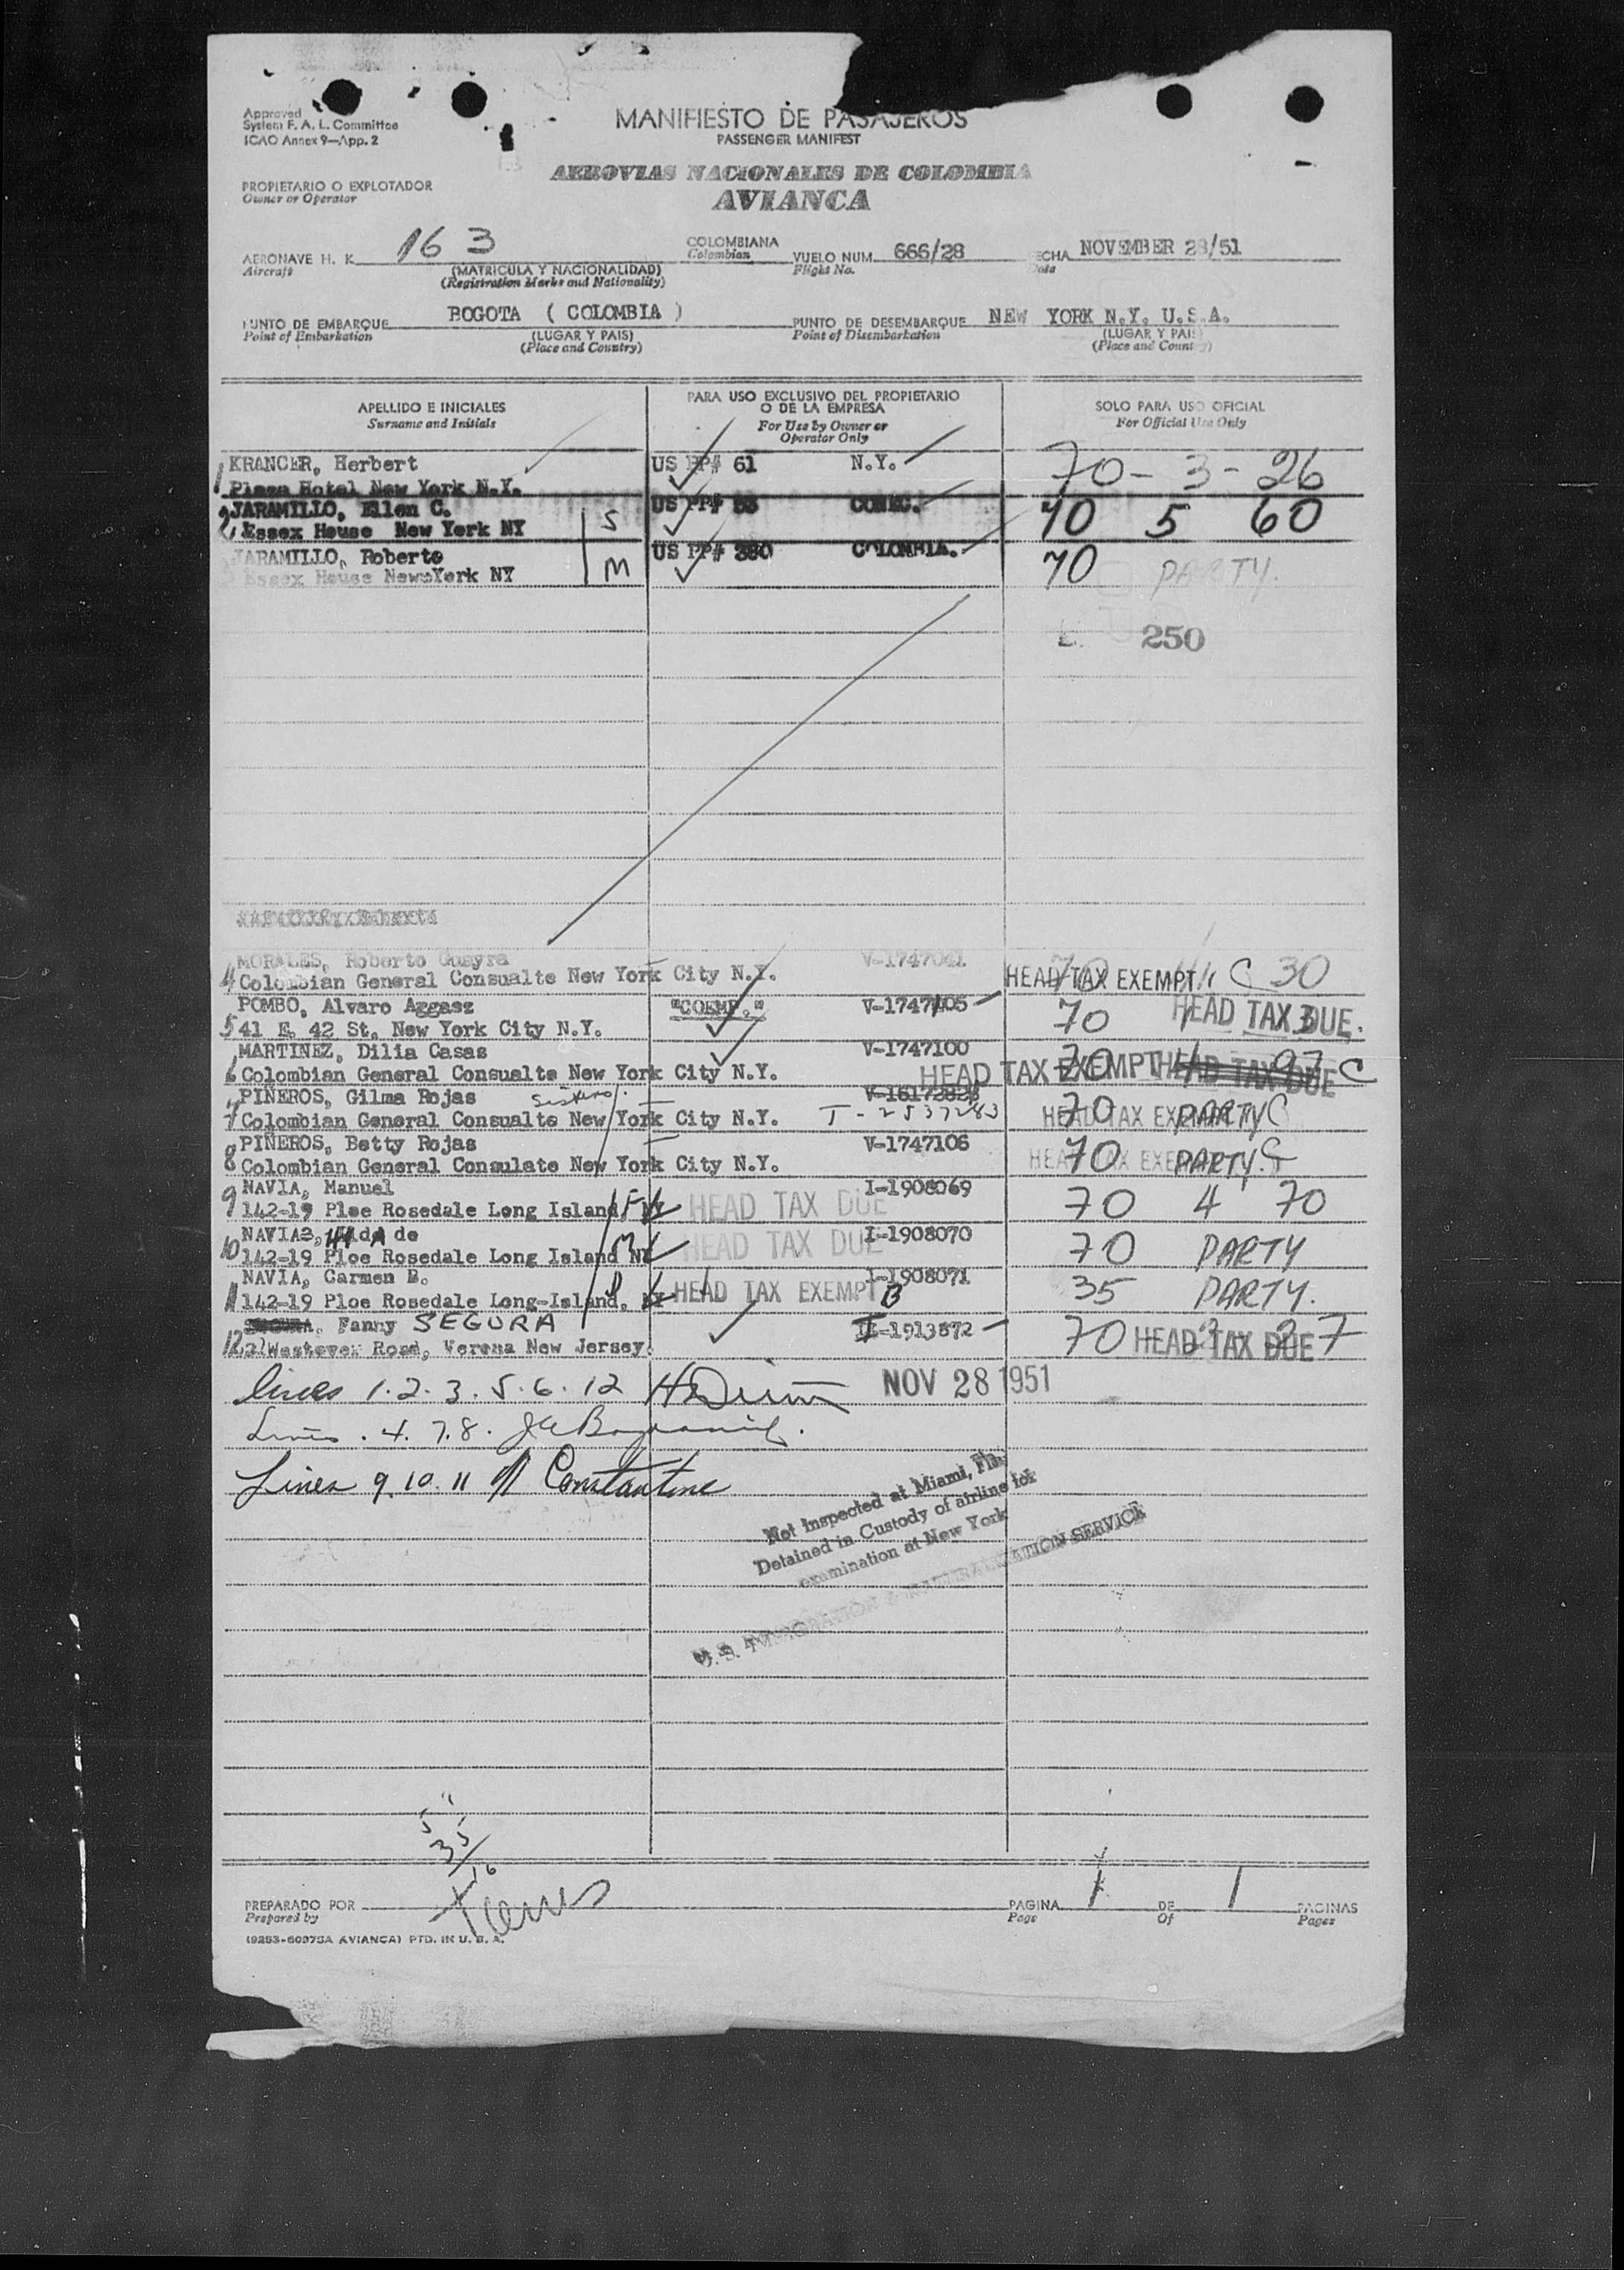 Approved
System F. A. L. Committee
ICAO Annex 9—App. 2
MANIFIESTO DE PASAJEROS
PASSENGER MANIFEST
PROPIETARIO O EXPLOTADOR
Owner or Operator
AEROVIAS NACIONALES DE COLOMBIA
AVIANCA
AERONAVE H. K. 163 COLOMBIANA VUELO NUM. 666/28 ECHA NOVEMBER 28/51
Aircraft (MATRICULA Y NACIONALIDAD) Colombian Flight No.
(Registration Marks and Nationality)
PUNTO DE EMBARQUE BOGOTA ( COLOMBIA ) PUNTO DE DESEMBARQUE NEW YORK N.Y. U.S.A.
Point of Embarkation (LUGAR Y PAIS) Point of Disembarkation (LUGAR Y PAIS)
(Place and Country) (Place and Country)
APELLIDO E INICIALES
Surname and Initials
PARA USO EXCLUSIVO DEL PROPIETARIO
O DE LA EMPRESA
For Use by Owner or
Operator Only
SOLO PARA USO OFICIAL
For Official Use Only
1 KRANCER, Herbert US PP# 61 N.Y. 70 - 3 - 26
Plaza Hotel New York N.Y.
2 JARAMILLO, Ellen C. S US PP# 53 CONEC. 70 5 60
Essex House New York NY
JARAMILLO, Roberto M US PP# 280 COLOMBIA. 70 PARTY.
Essex House New York NY
250
4 MORALES, Roberto V-1747041 HEAD TAX EXEMPT C 30
Colombian General Consualte New York City N.Y.
POMBO, Alvaro Aggasz "COEMP." V-1747105 70 HEAD TAX DUE.
5 41 E. 42 St. New York City N.Y.
MARTINEZ, Dilia Casas V-1747100 70 HEAD TAX DUE
6 Colombian General Consualte New York City N.Y. HEAD TAX EXEMPT C
PINEROS, Gilma Rojas sisters
7 Colombian General Consualte New York City N.Y. I-2537283 HEAD TAX EXEMPT 70 PARTY C
PIÑEROS, Betty Rojas V-1747106
8 Colombian General Consulate New York City N.Y. HEAD TAX EXEMPT 70 PARTY. C
NAVIA, Manuel I-1908069
9 142-19 Ploe Rosedale Long Island, NY HEAD TAX DUE 70 4 70
NAVIA, de I-1908070
10 142-19 Ploe Rosedale Long Island NY M HEAD TAX DUE 70 PARTY
NAVIA, Carmen B. I-1908071
11 142-19 Ploe Rosedale Long-Island, NY HEAD TAX EXEMPT B 35 PARTY.
Fanny SEGURA I-1913872 70 HEAD TAX DUE 7
12 Westover Road, Verona New Jersey.
lines 1.2.3.5.6.12 NOV 28 1951
Lines . 4. 7.8.
Lines 9.10.11 Constantine
Not Inspected at Miami, Fla.
Detained in Custody of airline for
examination at New York
U. S. IMMIGRATION & NATURALIZATION SERVICE
35
PREPARADO POR PAGINA 1 DE 1 PAGINAS
Prepared by Page Of Pages
(9253-6097SA AVIANCA) PTD. IN U. S. A.